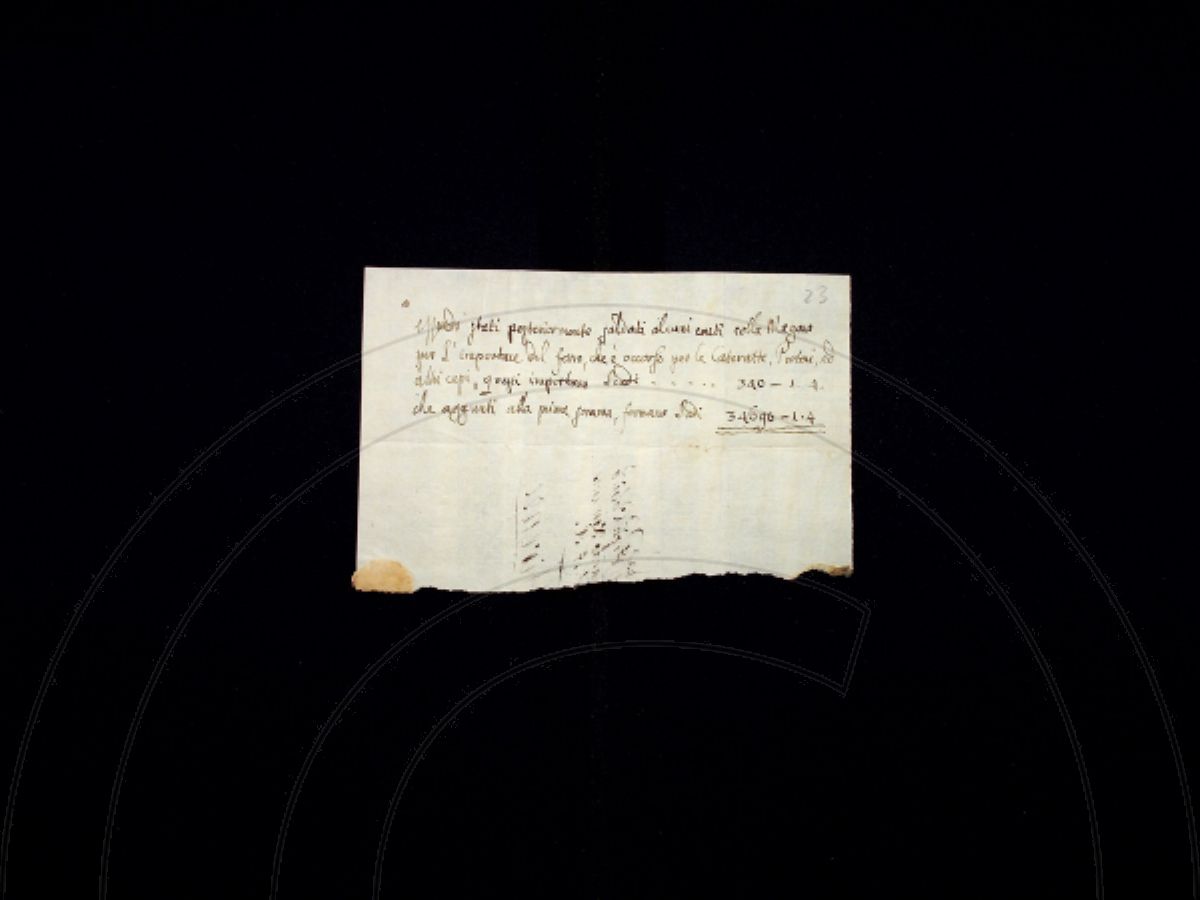 23
Essendo stati posteriormente saldati alcuni conti colla Magona
per l'importare del ferro, che è occorso per le Cateratte, Portoni, ed
altri capi, questi importano Scudi . . . . . 340 — 1. 4.
che aggiunti alla prima somma, formano Scudi 34696 — 1. 4